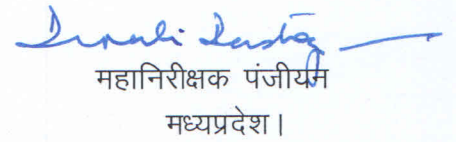 महानिरीक्षक पंजीयन
मध्यप्रदेश।